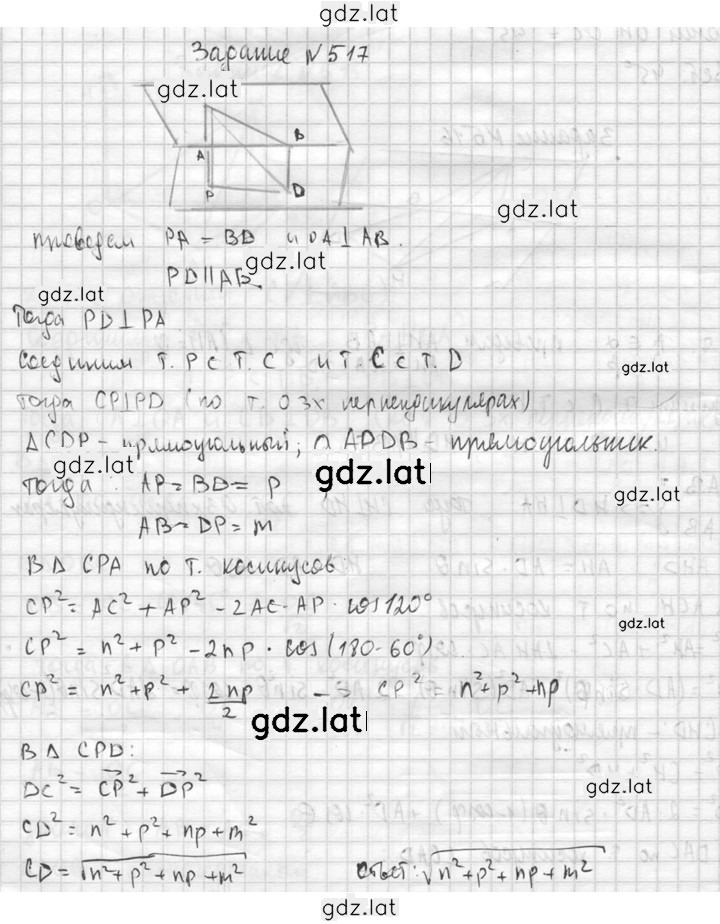 gdz.lat
Задание №517
gdz.lat
A B
P D
gdz.lat
проведем PA = BD и DA⊥AB.
gdz.lat
PD||AB.
gdz.lat
Тогда PD⊥PA
Соединим т. P с т. C и т. C с т. D
gdz.lat
тогда CP⊥PD (по т. о 3х перпендикулярах)
ΔCDP - прямоугольный; ∩ APDB - прямоугольник.
gdz.lat gdz.lat
тогда: AP = BD = P
gdz.lat
AB = DP = m
В Δ CPA по т. косинусов
CP² = AC² + AP² - 2AC·AP · cos 120°
gdz.lat
CP² = n² + p² - 2np · cos (180-60°)
CP² = n² + p² + 2np/2 → CP² = n²+p²+np
gdz.lat
В Δ CPD:
DC² = CP² + DP²
gdz.lat
CD² = n² + p² + np + m²
CD = √n²+p²+np+m² Ответ: √n²+p²+np+m²
gdz.lat